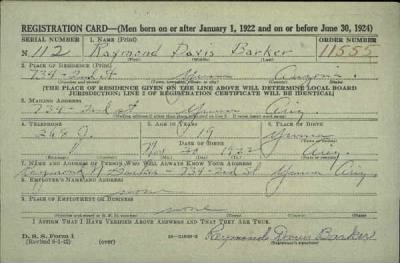 REGISTRATION CARD—(Men born on or after January 1, 1922 and on or before June 30, 1924)
SERIAL NUMBER 1. NAME (Print) ORDER NUMBER
N 112 Raymond Davis Barker 11555
(First) (Middle) (Last)
2. PLACE OF RESIDENCE (Print)
734-2nd St Yuma Arizona
(THE PLACE OF RESIDENCE GIVEN ON THE LINE ABOVE WILL DETERMINE LOCAL BOARD
JURISDICTION; LINE 2 OF REGISTRATION CERTIFICATE WILL BE IDENTICAL)
3. MAILING ADDRESS
734-2nd St Yuma Ariz
[Mailing address if other than place indicated on line 2. If same insert word same]
4. TELEPHONE 5. AGE IN YEARS 6. PLACE OF BIRTH
J. 19 Yuma
DATE OF BIRTH
Nov 30 1922 Ariz
(Exchange) (Number) (Mo.) (Day) (Yr.) (State or country)
7. NAME AND ADDRESS OF PERSON WHO WILL ALWAYS KNOW YOUR ADDRESS
Raymond Barker - 734-2nd St Yuma Ariz
8. EMPLOYER'S NAME AND ADDRESS
none
9. PLACE OF EMPLOYMENT OR BUSINESS
none
(Number and street or R. F. D. number) (Town) (County) (State)
I AFFIRM THAT I HAVE VERIFIED ABOVE ANSWERS AND THAT THEY ARE TRUE.
D. S. S. Form 1
(Revised 6-1-42) (over) Raymond Davis Barker
(Registrant's signature)